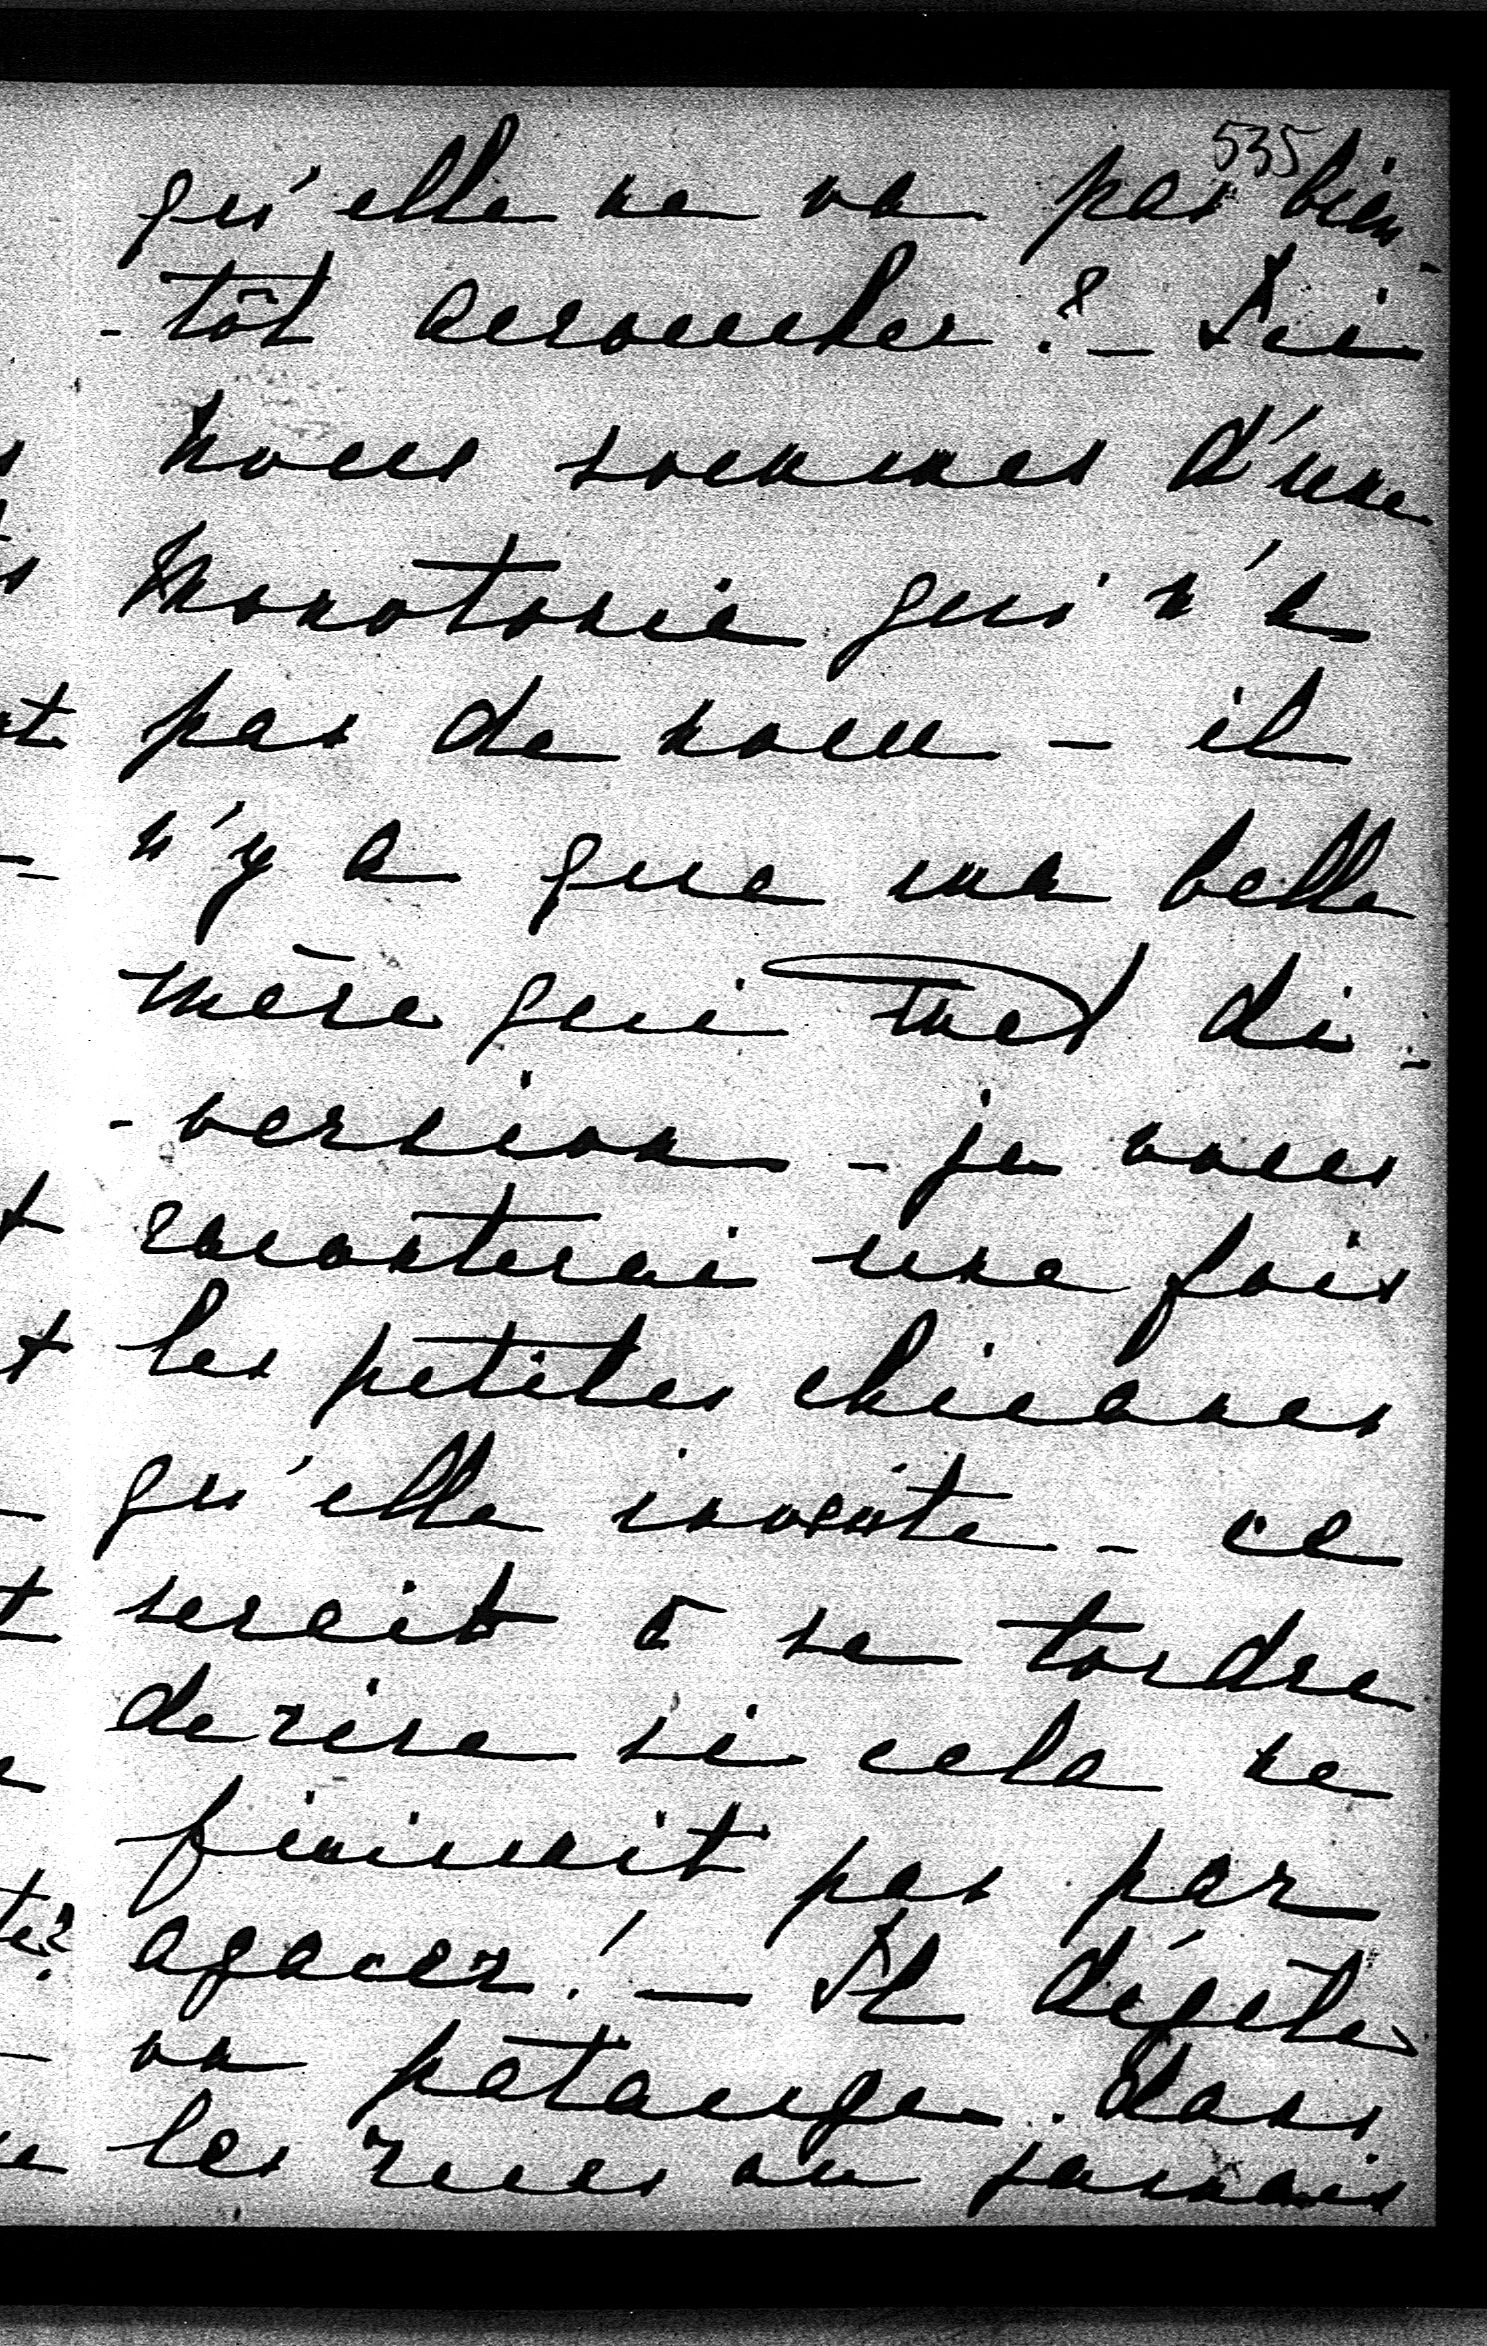 535
qu'elle ne va pas bien-
-tôt accoucher? - Ici
nous sommes d'une
monotonie qui n'a
pas de nom - il
n'y a que ma belle
mère qui met di-
-version - je vous
raconterai une fois
les petites chicanes
qu'elle invente - ce
serait à se tordre
de rire si cela ne
finissait pas par
agacer! - Il dégèle
on patauge dans
les rues où jamais